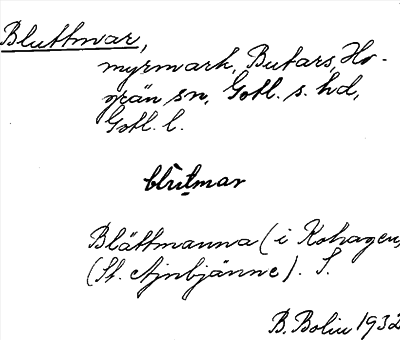 Bluttmvar,
myrmark, Butars, Ho-
grän sn, Gotl. s. hd,
Gotl. l.
blùtmar
Blättmanna (i Kohagen,
(St. Ajnbjänne). S.
B. Bolin 1932